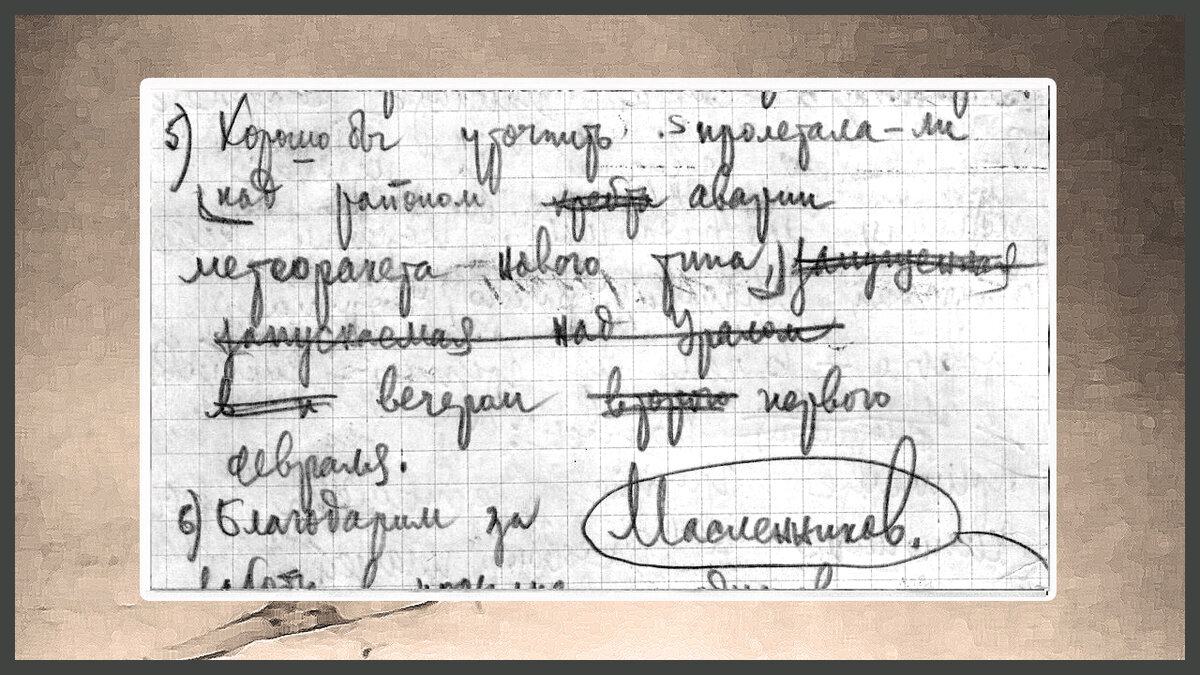 5) Хорошо бы уточнить пролетала-ли
над районом аварии
метеоракета нового типа, запущенная
запускаемая над Уралом
в вечером второго первого
февраля.
6) Благодарим за Масленников.